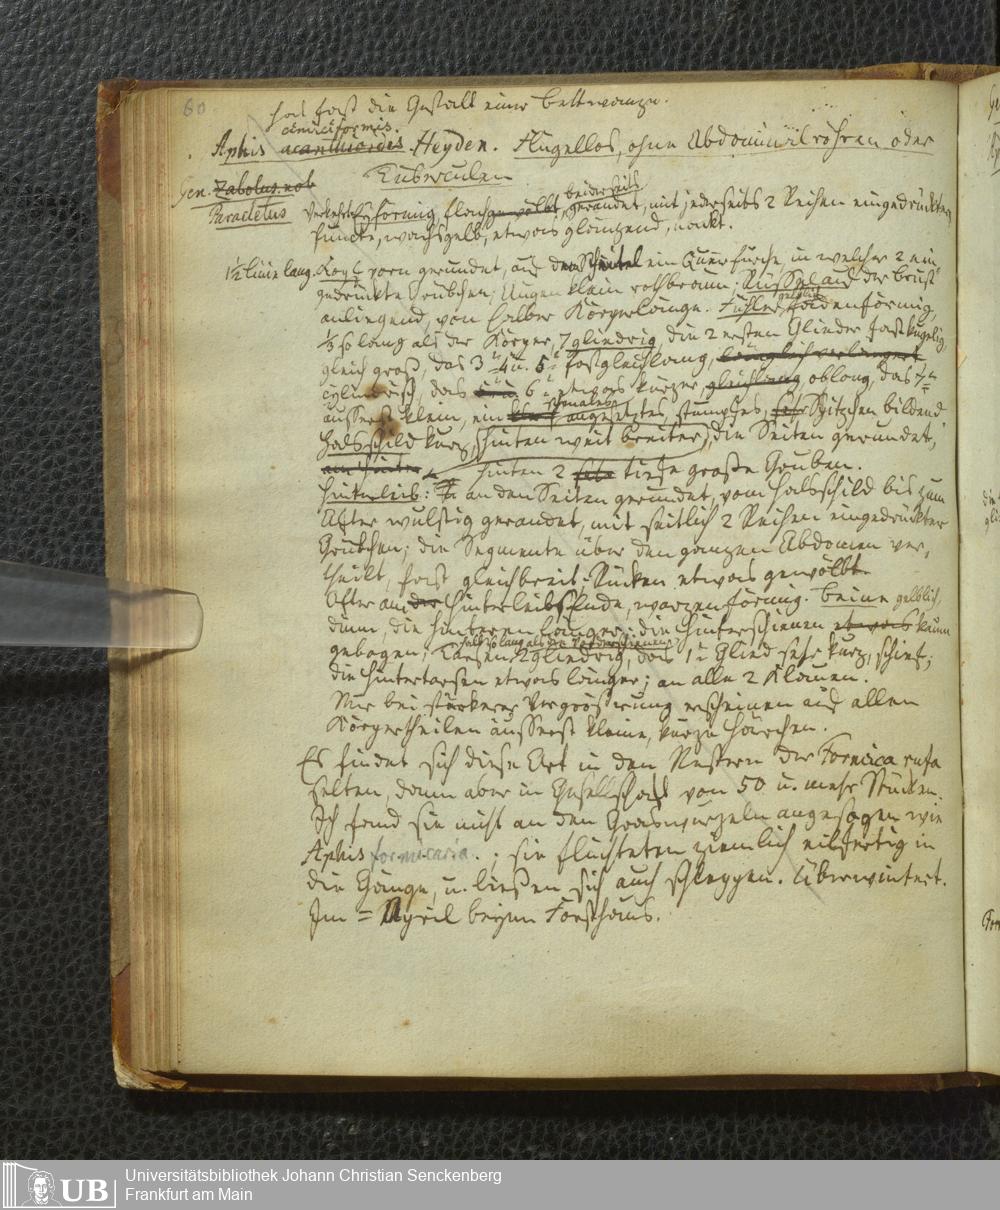 60
hat fast die Gestalt einer Bettwanze.
cimiciformis.
Aphis acanthioides Heyden. Flügellos, ohne Abdominalröhren oder
Tuberculen
Gen. Zabolus. nob
Paracletus
verkehrt eyförmig, flach gewölbt, beiderseits gerandet, mit jederseits 2 Reihen eingedrückter
Puncte, wachsgelb, etwas glänzend, nackt.
1½ Linie lang. Kopf vorn gerundet, auf dem Scheitel ein Querfurche, in welcher 2 ein-
gedrückte Grübchen; Augen klein rothbraun; Rüssel auf der Brust
anliegend, von halber Körperlänge. Fühler gelblich, fadenförmig,
⅓ so lang als der Körper, 7gliedrig, die 2 ersten Glieder fast kugelig,
gleich groß, das 3te 4te u. 5te fast gleichlang, länglich verlängert
cylindrisch, das 6te etwas kürzer, gleichlang, oblong, das 7te
äusserst klein, ein schmales angesetztes, stumpfes, Spitzchen bildend
Halsschild kurz, hinten weit breiter, die Seiten gerundet,
am hinter hinten 2 sehr tiefe große Gruben.
Hinterleib: an den Seiten gerundet, vom Halsschild bis zum
After wulstig gerandet, mit seitlich 2 Reihen eingedrückter
Grübchen; die Segmente über den ganzen Abdomen ver-
theilt, fast gleichbreit. Rücken etwas gewölbt.
After am Hinterleibsende, warzenförmig. Beine gelblich,
dünn, die hinteren länger; die Hinterschienen etwas kaum
gebogen; halb so lang als die Vorderschienen
Tarsen 2gliedrig, das 1te Glied sehr kurz, schief;
die Hintertarsen etwas länger; an alle 2 Klauen.
Nur bei stärkerer Vergrösserung erscheinen auf allen
Körpertheilen äusserst kleine, kurze Härchen.
Es findet sich diese Art in den Nestern der Formica rufa
selten, dann aber in Gesellschaft von 50 u. mehr Stücken.
Ich fand sie nicht an den Graswurzeln angesogen wie
Aphis formicaria.; sie flüchteten ziemlich eilfertig in
die Gänge, u. ließen sich auch schleppen. Überwintert.
Im = April beym Forsthaus.
UB
Universitätsbibliothek Johann Christian Senckenberg
Frankfurt am Main